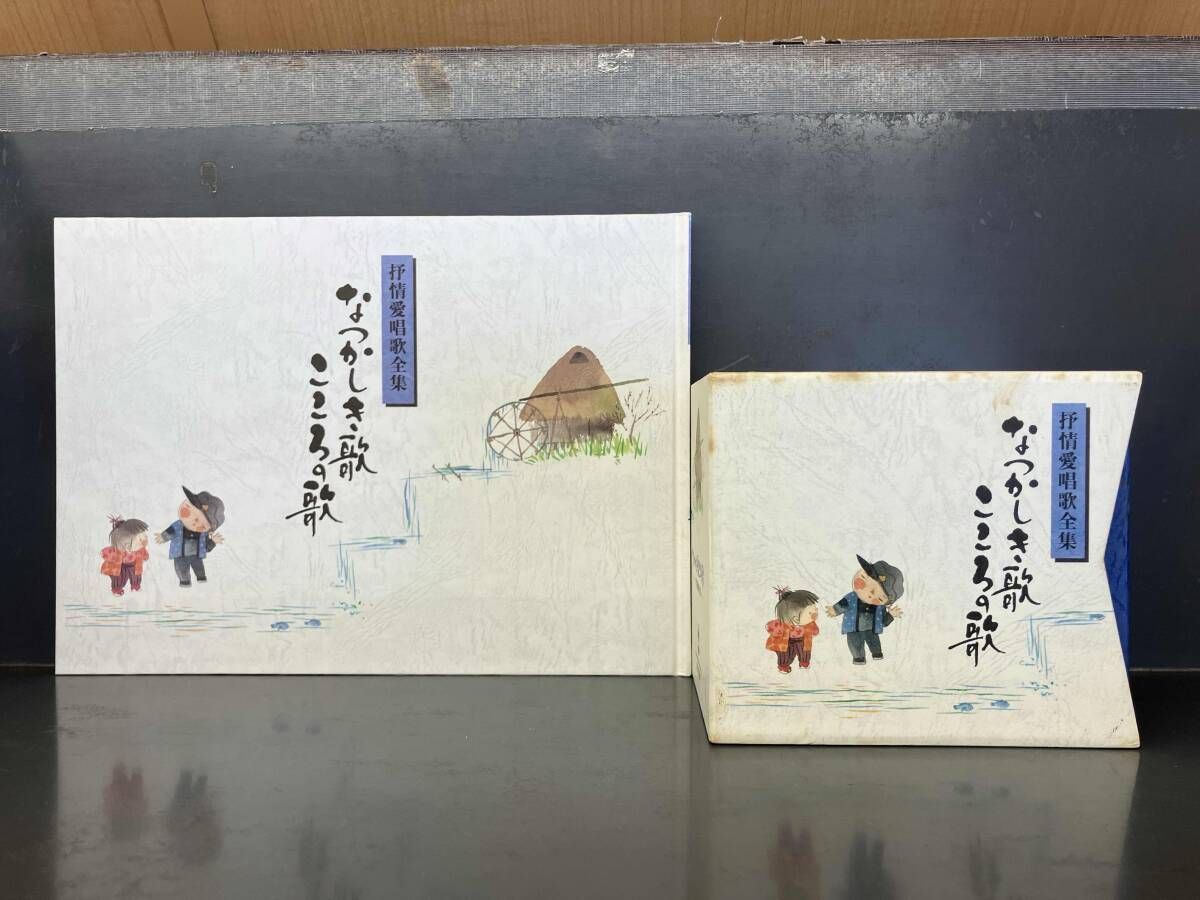 抒情愛唱歌全集
なつかしき歌
こころの歌
抒情愛唱歌全集
なつかしき歌
こころの歌